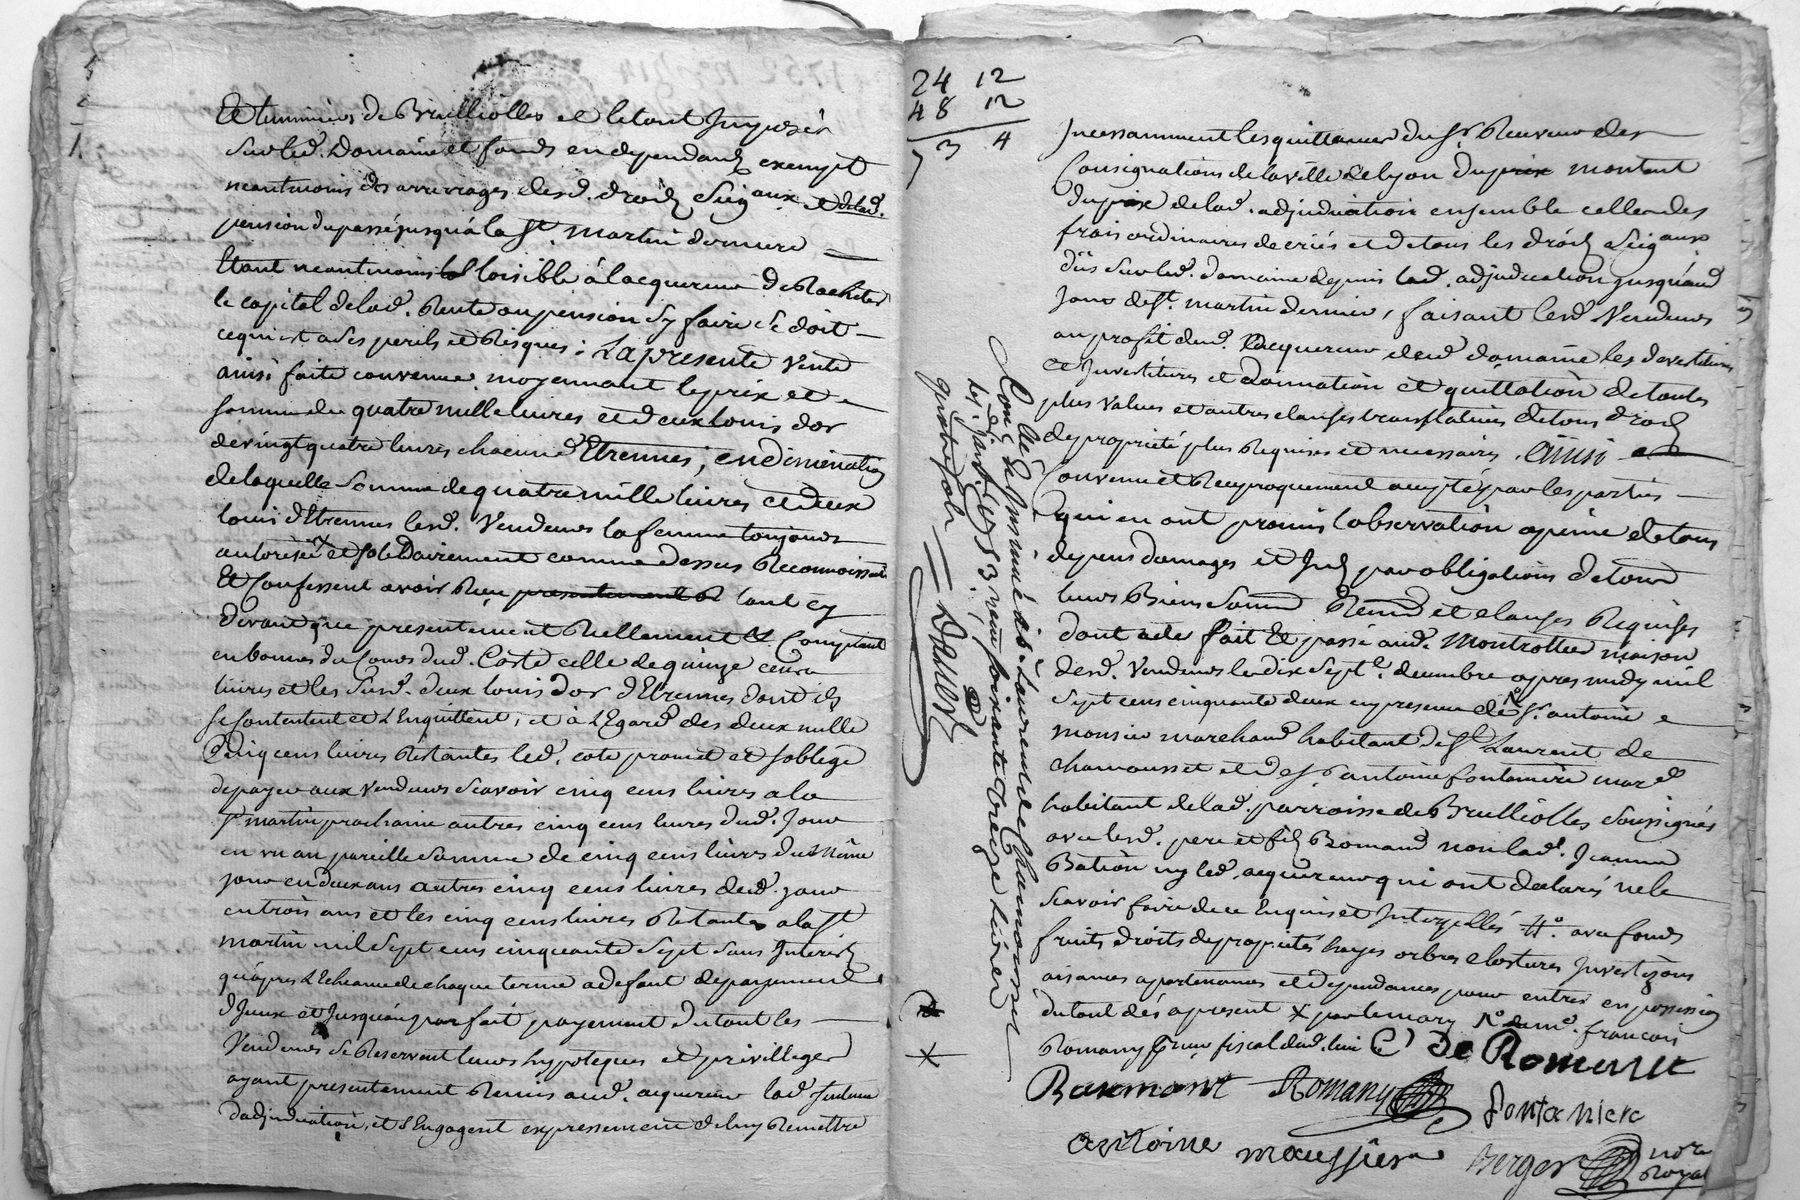 Et luminier de Brulliolles et le tout Imposés
Sur led. Domaine et fonds en dependants exempt
neantmoins des arrerages desd. droits Seigaux et delad.
pension du passé jusquá la St. martin derniere
Etant neantmoins loisible á lacquereur de Rachetér
le capital delad. Rente ou pension Sy faire Se doit
ce qui est a Ses perils et Risques; La presente Vente
ainsi faite convenue moyennant le prix et
Somme de quatre mille livres et deux louis dor
de vingt quatre livres chacun d'Etrennes, en diminution
de laquelle Somme de quatre mille livres et deux
louis d'Etrennes lesd. Vendeurs la femme toujours
autorisée et solidairement comme dessus Reconnoissent
Et Confessent avoir Reçu presentement tant cy
devant que presentement Réellement et Comptant
en bonnes du Cours dud. Coste celle de quinze cens
livres et les Susd. deux louis dor d'Etrennes dont ils
Se Contentent et L'Enquittent, et à L'Egard des deux mille
Cinq cens livres Restantes led. Coste promet et soblige
de payer aux Vendeurs Scavoir cinq cens livres a la
St martin prochaine autres cinq cens livres dud. Jour
en un an pareille Somme de cinq cens livres du même
jour en deux ans autres cinq cens livres dud. jour
en trois ans et les cinq cens livres Restantes a la St
martin mil Sept cens cinquante Sept Sans Interéts
qu'apres L'Echeance de chaque terme a defaut de payement
d'Iceux et Jusquáu parfait payement du tout les
Vendeurs Se Reservant leurs hypoteques et privilleges
ayant presentement Remis aud. acquereur lad. Sentence
dadjudication, et S'Engagent expressement de luy Remettre
24 12
48 12
73 4
Incessamment les quittances du Sr. Receveur des
Consignations de la ville de lyon du prix montant
du prix de lad. adjudication ensemble celles des
frais ordinaires de criés et de tous les droits Seigaux
dûs Sur led. domaine depuis lad. adjudication jusquáud
Jour de St. martin dernier, faisant lesd. Vendeurs
au profit dud. lacquereur dud. domaine les devestitures
et Investitures et donnation et quittation de toutes
plus Values et autres clauses translatives de tous droits
de propriété plus Requises et necessaires. Ainsi
Convenu et Reciproquement accepté par les parties
qui en ont promis lobservation a peine de tous
depens domages et Ints par obligations de tous
leurs Biens Soumis Renon et clauses Requises
dont acte fait et passé aud. Montrottier maison
desd. Vendeurs le dix Septe. decembre apres midy mil
Sept cens cinquante deux en presence de Sr. antoine
monsier marchand habitant de St Laurent de
chamousset et de Sr antoine fontaniere mard
habitant de lad. parroisse de Brulliolles Soussignés
avec lesd. pere et fils Romand non lad. Jeanne
Bation ny led. acquereur qui ont declarés ne le
Scavoir faire de ce Enquis et Interpellés avec fonds
fruits droits de proprietés hayes arbres clostures Investizons
aisances apartenances et dependances pour entrer en possession
du tout dés apresent par le mary Me. francois
Romany Greur fiscal dud. lieu
De Romany
Raumont Romany
fontaniere
antoine maussier
Berger nore
Royal
Controllé et Insinué à St Laurent de Chamousset
le janv. 1753. Reçu soixante treize livres
quatre sols